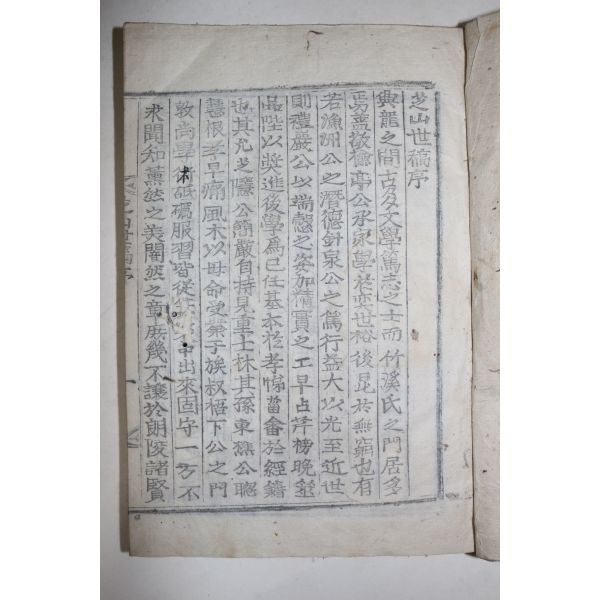 芝山世稿序
興龍之間古多文學篤志之士而竹溪氏之門居多
焉盖敬極亭公承家學於奕世裕後昆於無窮也有
若漁洲公之潛德針泉公之篤行益大以光至近世
則禮巖公以端慤之姿加精實之工早占芹榜晚
品陛以奬進後學爲己任基本於孝悌菑畬於經籍
也其允芝隱公簡嚴自持見重士林其孫東樵公聰
慧根孝早痛風木以母命受業于族叔梧下公之門
敦尚學術砥礪服習皆從 中出來固守一方不
求聞知薰然之美闇然之章庶幾不讓於朗陵諸賢